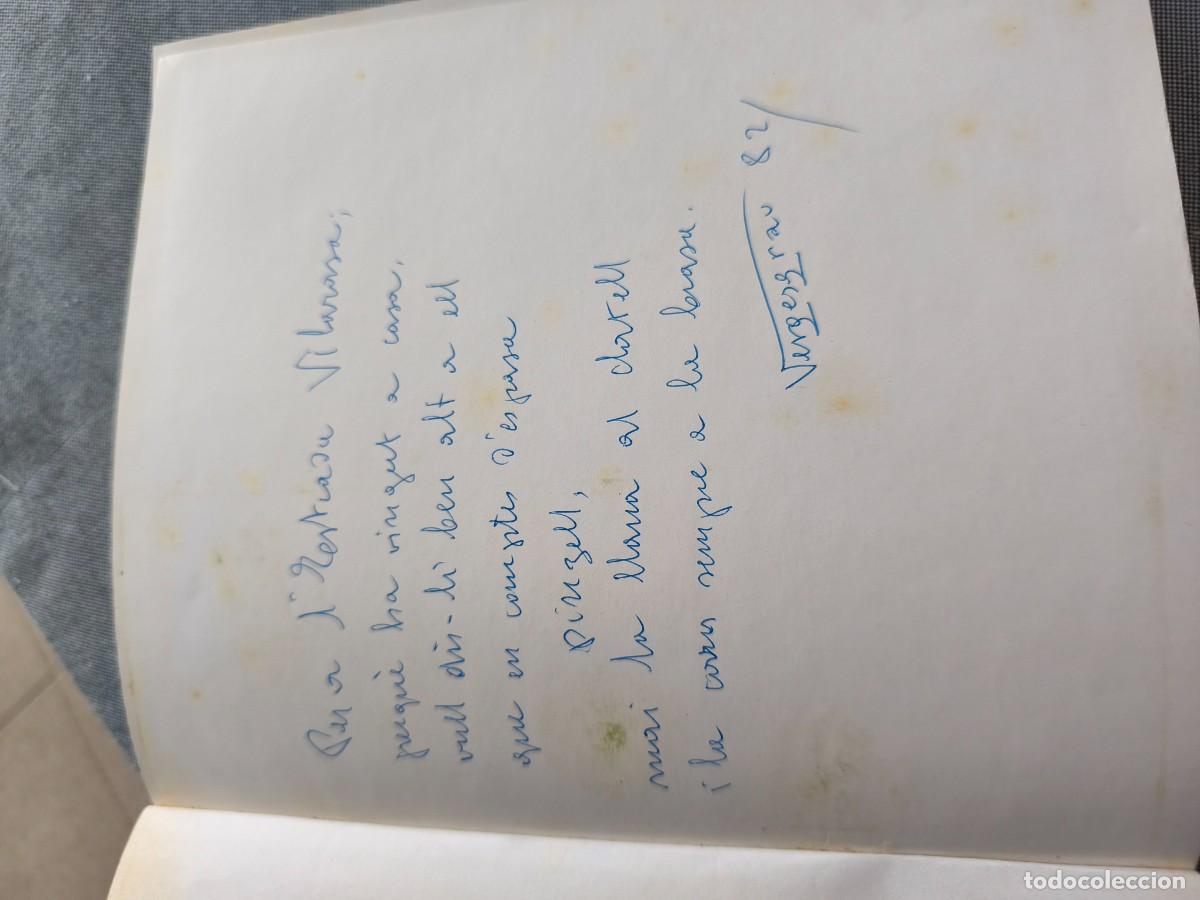 Per a l'Estrada Vilarasa;
perquè ha vingut a casa,
vull dir-li ben alt a ell
que en comptes d'espasa
pinzell,
mai la llana al clatell
i la carn sempre a la brasa.
Vergesgrau 82/
todocoleccion